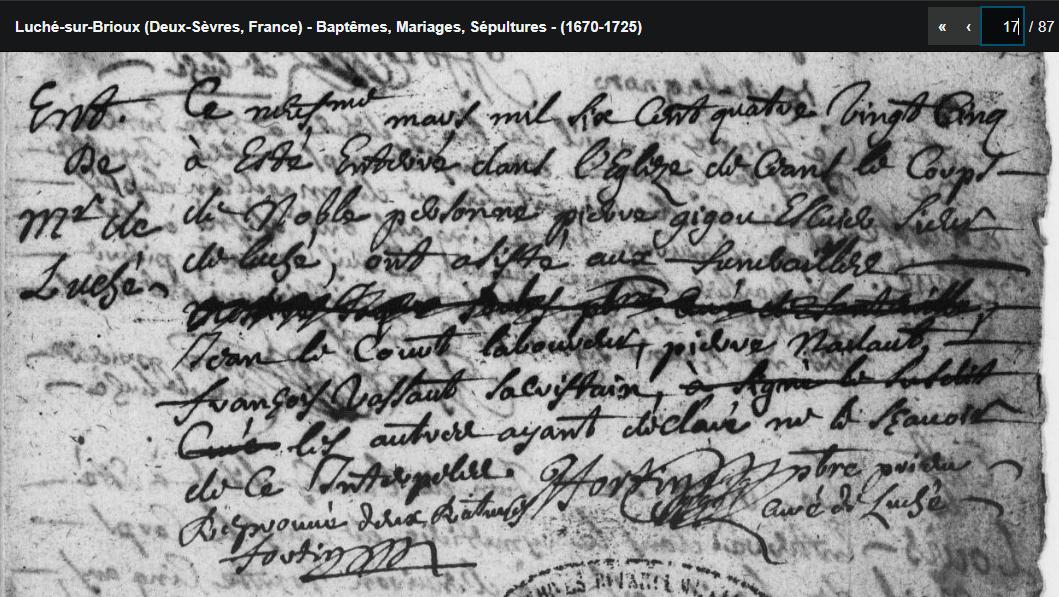 Luché-sur-Brioux (Deux-Sèvres, France) - Baptêmes, Mariages, Sépultures - (1670-1725)
« ‹ 17 / 87
Ent.
De
Mr de
Luché
Ce neufme mars mil six Cent quatre Vingt Cinq
à Esté Enterré dans l'Eglize de Ceans le Corps
de Noble personne pierre gigou Escuier sieur
de luché, ont asisté aux funerailles
Jean le Court laboureur, pierre Nadaut,
françois Vassaut sacristain, à signé le susdit
Curé les autres ayant declaré ne le sçauoir
de Ce Interpelles. Fortin pbre prieur
curé de Luché
Reprouué deux Ratures
Fortin